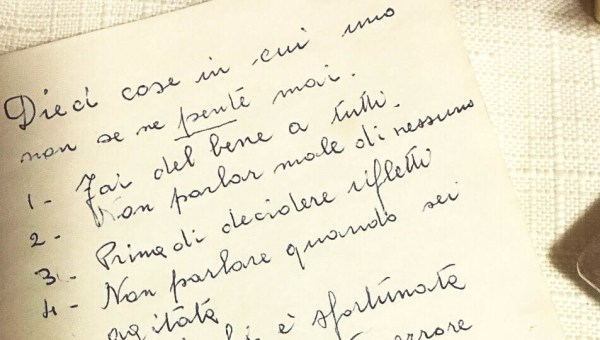 Dieci cose in cui uno
non se ne pente mai.
1 - Fai del bene a tutti.
2 - Non parlar male di nessuno
3 - Prima di decidere rifletti
4 - Non parlare quando sei
agitata
è sfortunata
errore